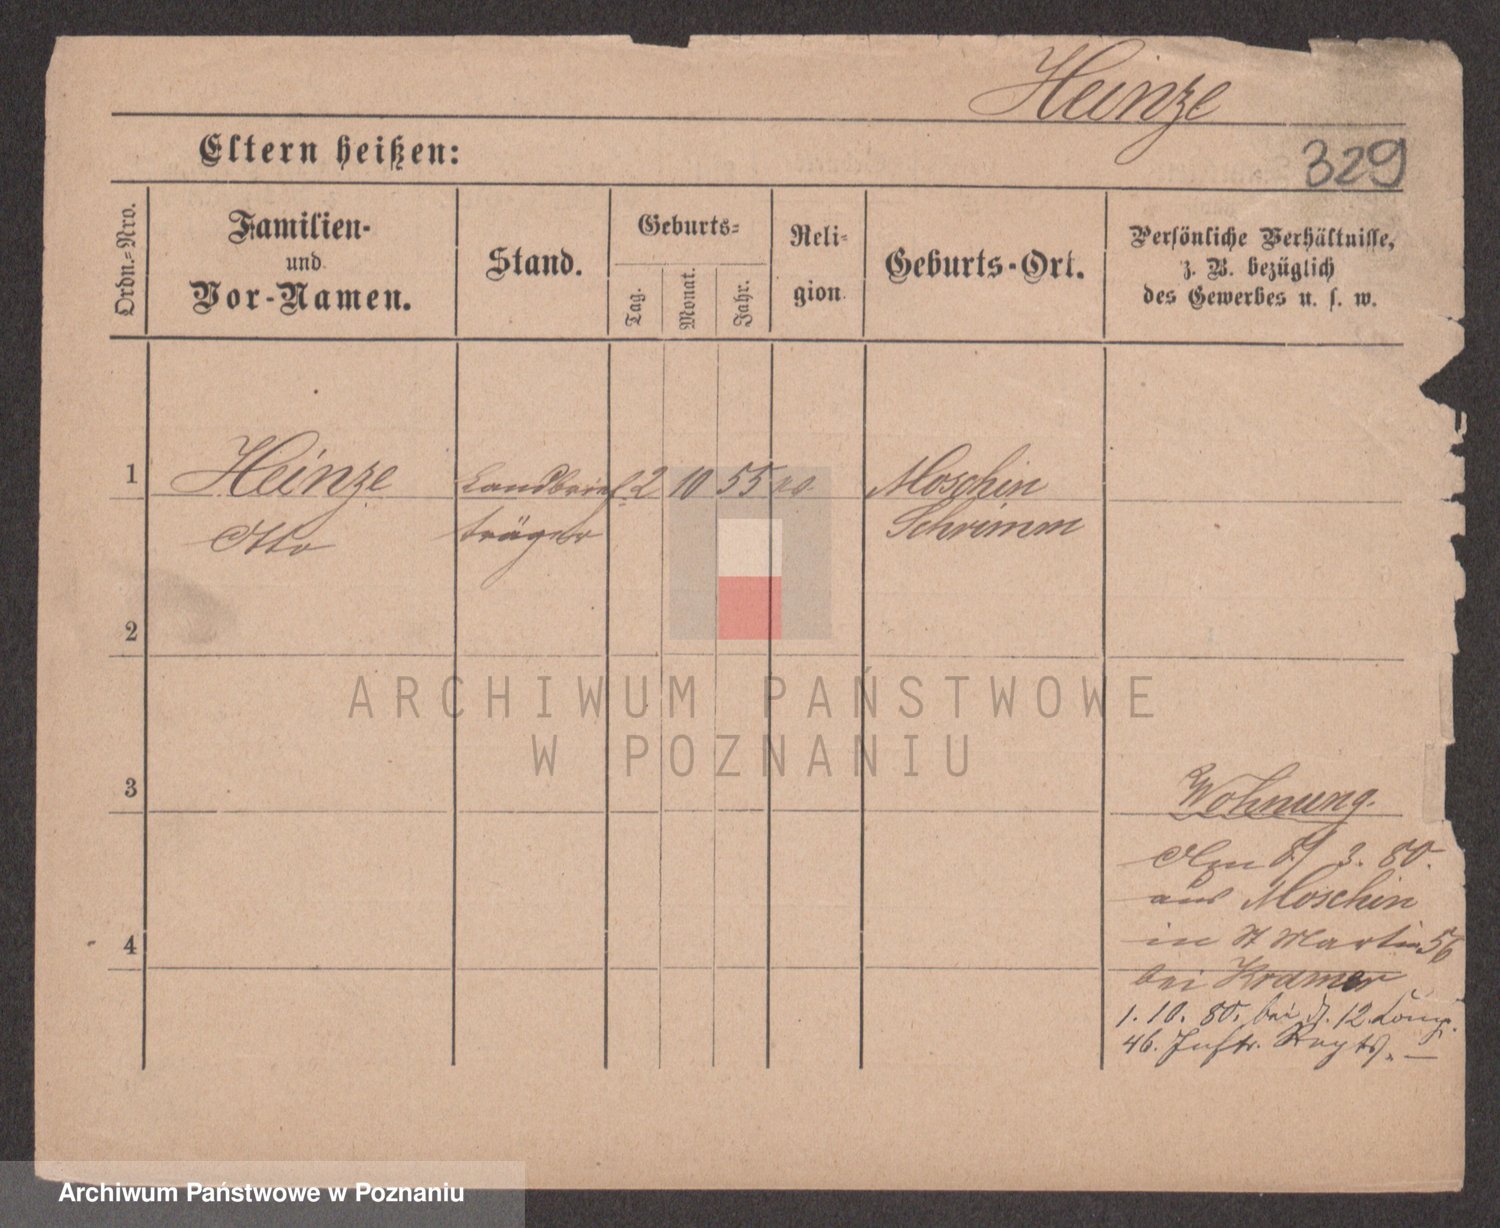 Heinze
329
Eltern heißen:
Ordn.-Nro.
Familien-
und
Vor-Namen.
Stand.
Geburts-
Tag.
Monat.
Jahr.
Reli-
gion
Geburts-Ort.
Persönliche Verhältnisse,
z. B. bezüglich
des Gewerbes u. s. w.
1 Heinze Landbrief 2 10 55 Moschin
Otto träger Schrimm
2
3
4
Wohnung.
Am 8/3. 80.
aus Moschin
in St Martin 56
bei Kramer
1. 10. 80. bei d. 12. Comp.
46. Inftr. Regts. —
ARCHIWUM PAŃSTWOWE
W POZNANIU
Archiwum Państwowe w Poznaniu